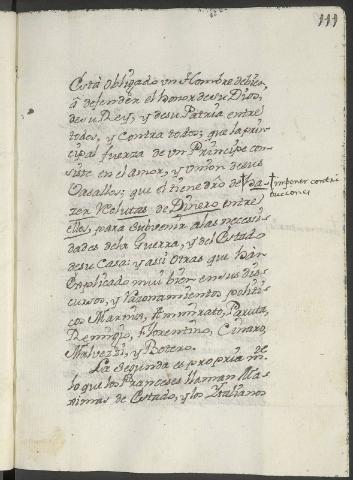 111
Està obligado un Hombre debien,
â defender el honor desu Dios,
desu Rey, y desu Patria entre
todos, y contra todos; que la prin-
cipal fuerza de un Principe con-
siste en el amor, y union desus
Vasallos; que el tiene dro de
imponer contri
bucciones
zer Velutas de Dinero entre
ellos, para subvenir alas necesi-
dades dela Guerra, y del Estado
desu Casa: y asi otras que hàn
explicado mui bien en sus dis-
cursos, y razonamientos politi-
cos Marmol, Amirato, Paruta,
Remigio, Florentino, Cinaro,
Malvezzi, y Botero.
La Segunda es propria de
lo que los Franceses llaman Ma-
ximas de Estado, y los Italianos